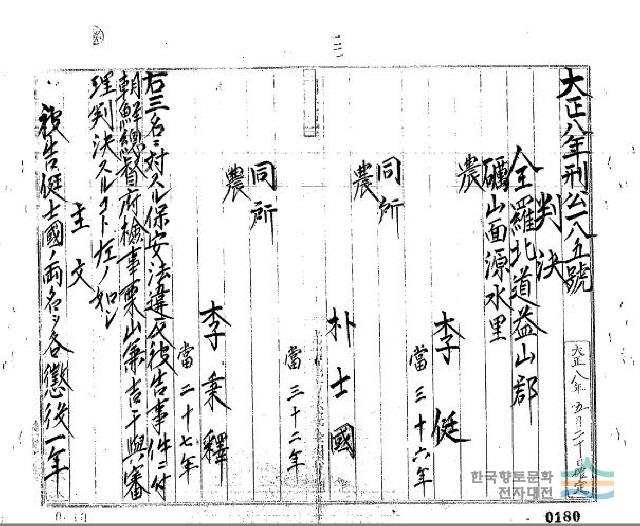 大正八年刑公一八五號
判決
全羅北道益山郡
礪山面源水里
農
李 侹
當三十六年
同所
農
朴士國
當三十二年
同所
農
李秉釋
當二十七年
右三名ニ對スル保安法違反被告事件ニ付
朝鮮總督府檢事栗山兼吉干與審
理判決スルコト左ノ如シ
主文
被告侹士國ノ両名ヲ各懲役一年
大正八年五月二十日確定
한국향토문화
전자대전
0180